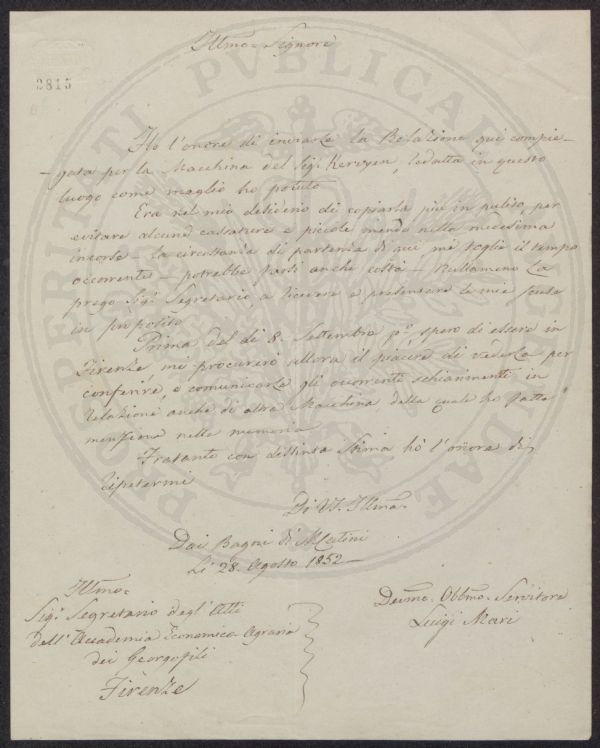 Illmo. Signore
2815
Ho l'onore di inviarle la Relazione qui compie-
-gata per la Macchina del Sig. redatta in questo
luogo come meglio ho potuto
Era nel mio desiderio di copiarla più in pulito, per
evitare alcune cassature e piccole mende nella medesima
incorse - la circostanza di partenza di qui, me toglie il tempo
occorrente - potrebbe farsi anche costà - La
prego Sig. Segretario a ricevere e presentare le mie scuse
in proposito
Prima del dì 8. Settembre po. spero di essere in
Firenze mi procurerò allora il piacere di vederla per
conferire, e comunicarle gli occorrenti schiarimenti in
relazione anche di altra Macchina della quale ho fatta
menzione nella memoria
Frattanto con distinta stima hò l'onore di
ripetermi
Di VS. Illma.
Dai Bagni di M.catini
Li 28. Agosto 1852
Illmo.
Sig. Segretario degl'Atti
dell'Accademia Economico-Agraria
dei Georgofili
Firenze
Devmo. Obbmo. Servitore
Luigi Mari
PROSPERITATI PUBLICAE AUGENDAE